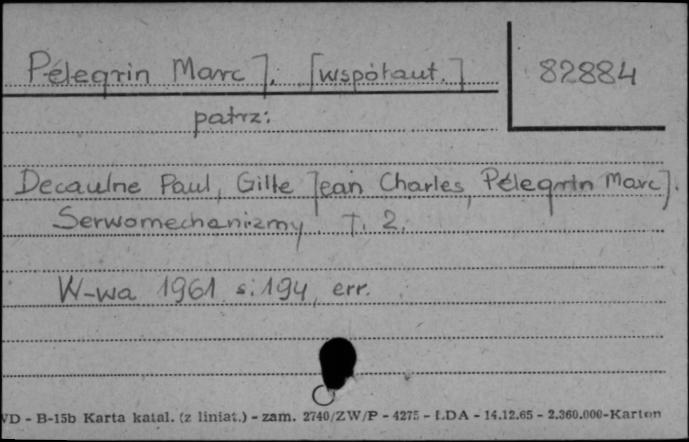 Pélegrin Marc J. [współaut.]
82884
patrz:
Decaulne Paul, Gille Jean Charles, Pélegrin Marc J.
Serwomechanizmy. T. 2.
W-wa 1961 s. 194, err.
VD - B-15b Karta katal. (z liniat.) - zam. 2740/ZW/P - 4275 - ŁDA - 14.12.65 - 2.360.000-Karton